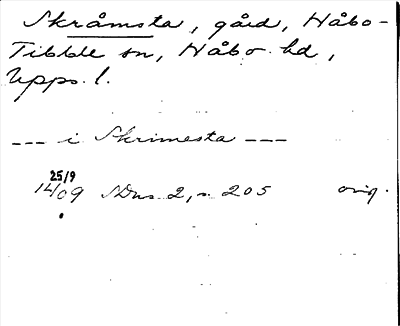 Skråmsta, gård, Håbo-
Tibble sn, Håbo hd,
Upps. l.
--- i Skrimesta ---
25/9
14/09 SDns 2, s. 205 orig.